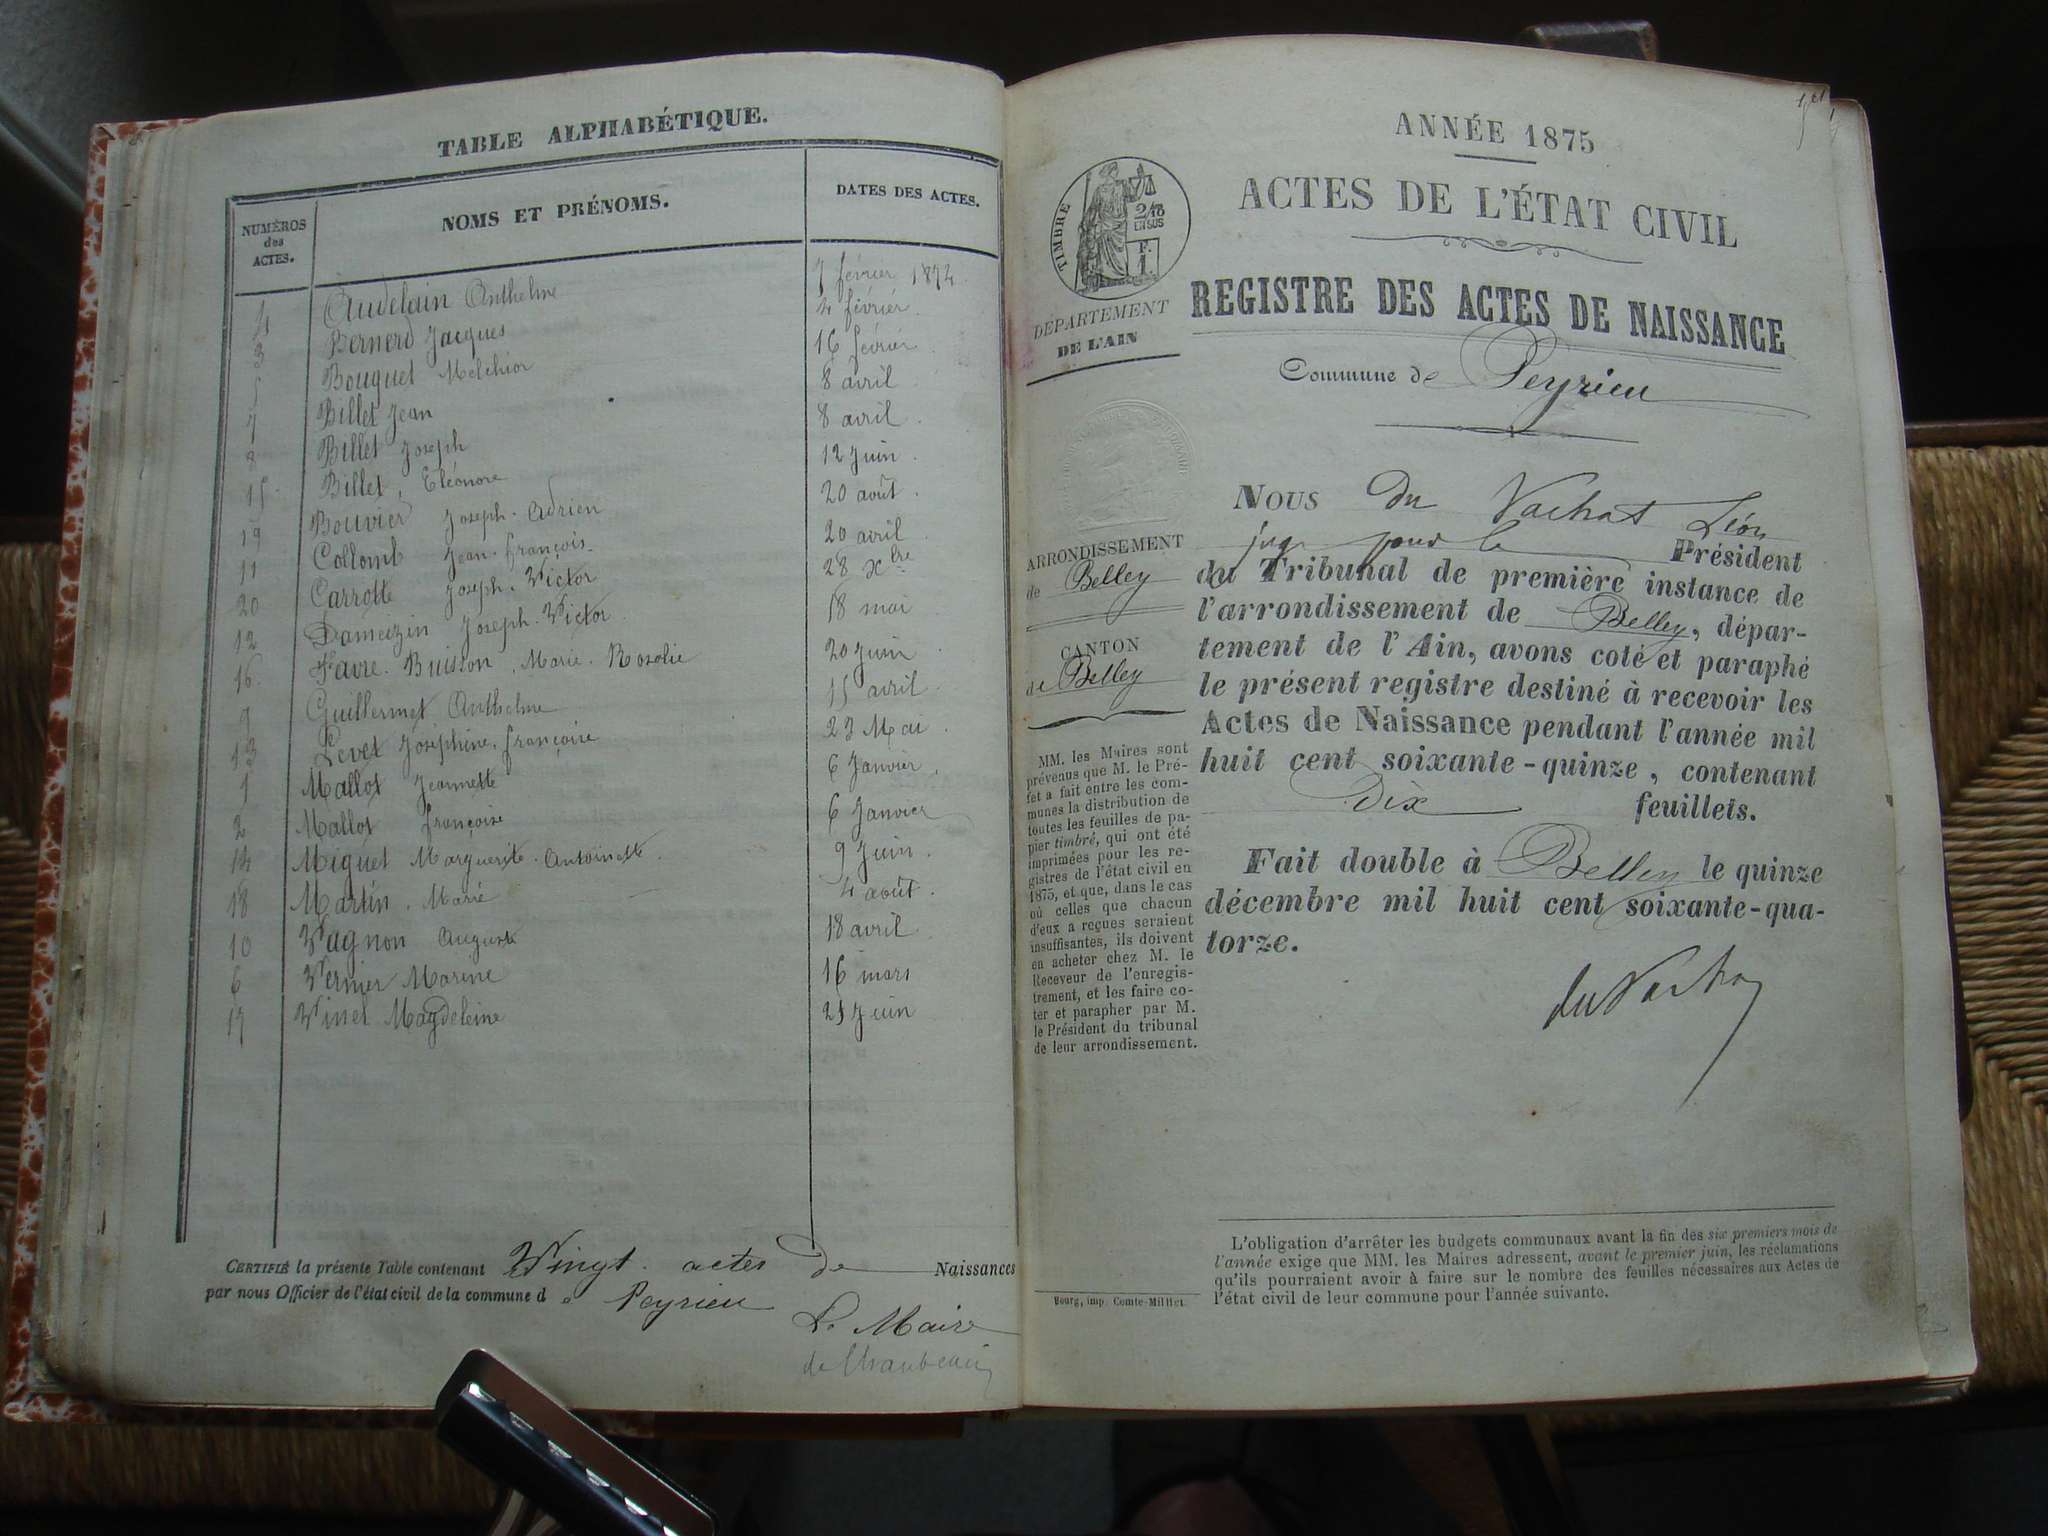 TABLE ALPHABÉTIQUE.
NUMÉROS des ACTES. NOMS ET PRÉNOMS. DATES DES ACTES.
4 Audelain Anthelme 7 février 1874
3 Bernerd Jacques 4 février.
5 Bouquet Melchior 16 février
7 Billet Jean 8 avril
8 Billet Joseph 8 avril.
15 Billet, Eléonore 12 Juin.
19 Bouvier Joseph. Adrien 20 août.
11 Collomb Jean-françois 20 avril
20 Carrotte Joseph. Victor 28 Xbre
12 Dameizin Joseph. Victor 18 mai
16. Favre. Buisson, Marie. Rosalie 20 Juin
9 Guillermet Anthelme 15 avril
13 Levet Joséphine, françoise 23 Mai
1 Mallot Jeannette 6 Janvier
2 Mallot françoise 6 Janvier
14 Miguet Marguerite. Antoinette 9 Juin.
18 Martin, Marie 4 août.
10 Vagnon Auguste 18 avril
6 Vernier Marine 16 mars
17 Vinet Magdeleine 21 Juin
CERTIFIÉ la présente Table contenant Vingt actes de Naissances
par nous Officier de l'état civil de la commune de Peyrieu
Le Maire
ANNÉE 1875
ACTES DE L'ÉTAT CIVIL
TIMBRE
EN SUS
F.
1.
REGISTRE DES ACTES DE NAISSANCE
DÉPARTEMENT
DE L'AIN
Commune de Peyrieu
ARRONDISSEMENT
de Belley
CANTON
de Belley
MM. les Maires sont
prévenus que M. le Pré-
fet a fait entre les com-
munes la distribution de
toutes les feuilles de pa-
pier timbré, qui ont été
imprimées pour les re-
gistres de l'état civil en
1875, et que, dans le cas
où celles que chacun
d'eux a reçues seraient
insuffisantes, ils doivent
en acheter chez M. le
Receveur de l'enregis-
trement, et les faire co-
ter et parapher par M.
le Président du tribunal
de leur arrondissement.
NOUS Du Vachat Léon
juge pour le Président
du Tribunal de première instance de
l'arrondissement de Belley, dépar-
tement de l'Ain, avons coté et paraphé
le présent registre destiné à recevoir les
Actes de Naissance pendant l'année mil
huit cent soixante-quinze, contenant
Dix feuillets.
Fait double à Belley le quinze
décembre mil huit cent soixante-qua-
torze.
du Vachat
L'obligation d'arrêter les budgets communaux avant la fin des six premiers mois de
l'année exige que MM. les Maires adressent, avant le premier juin, les réclamations
qu'ils pourraient avoir à faire sur le nombre des feuilles nécessaires aux Actes de
l'état civil de leur commune pour l'année suivante.
Bourg, imp. Comte-Milliet.